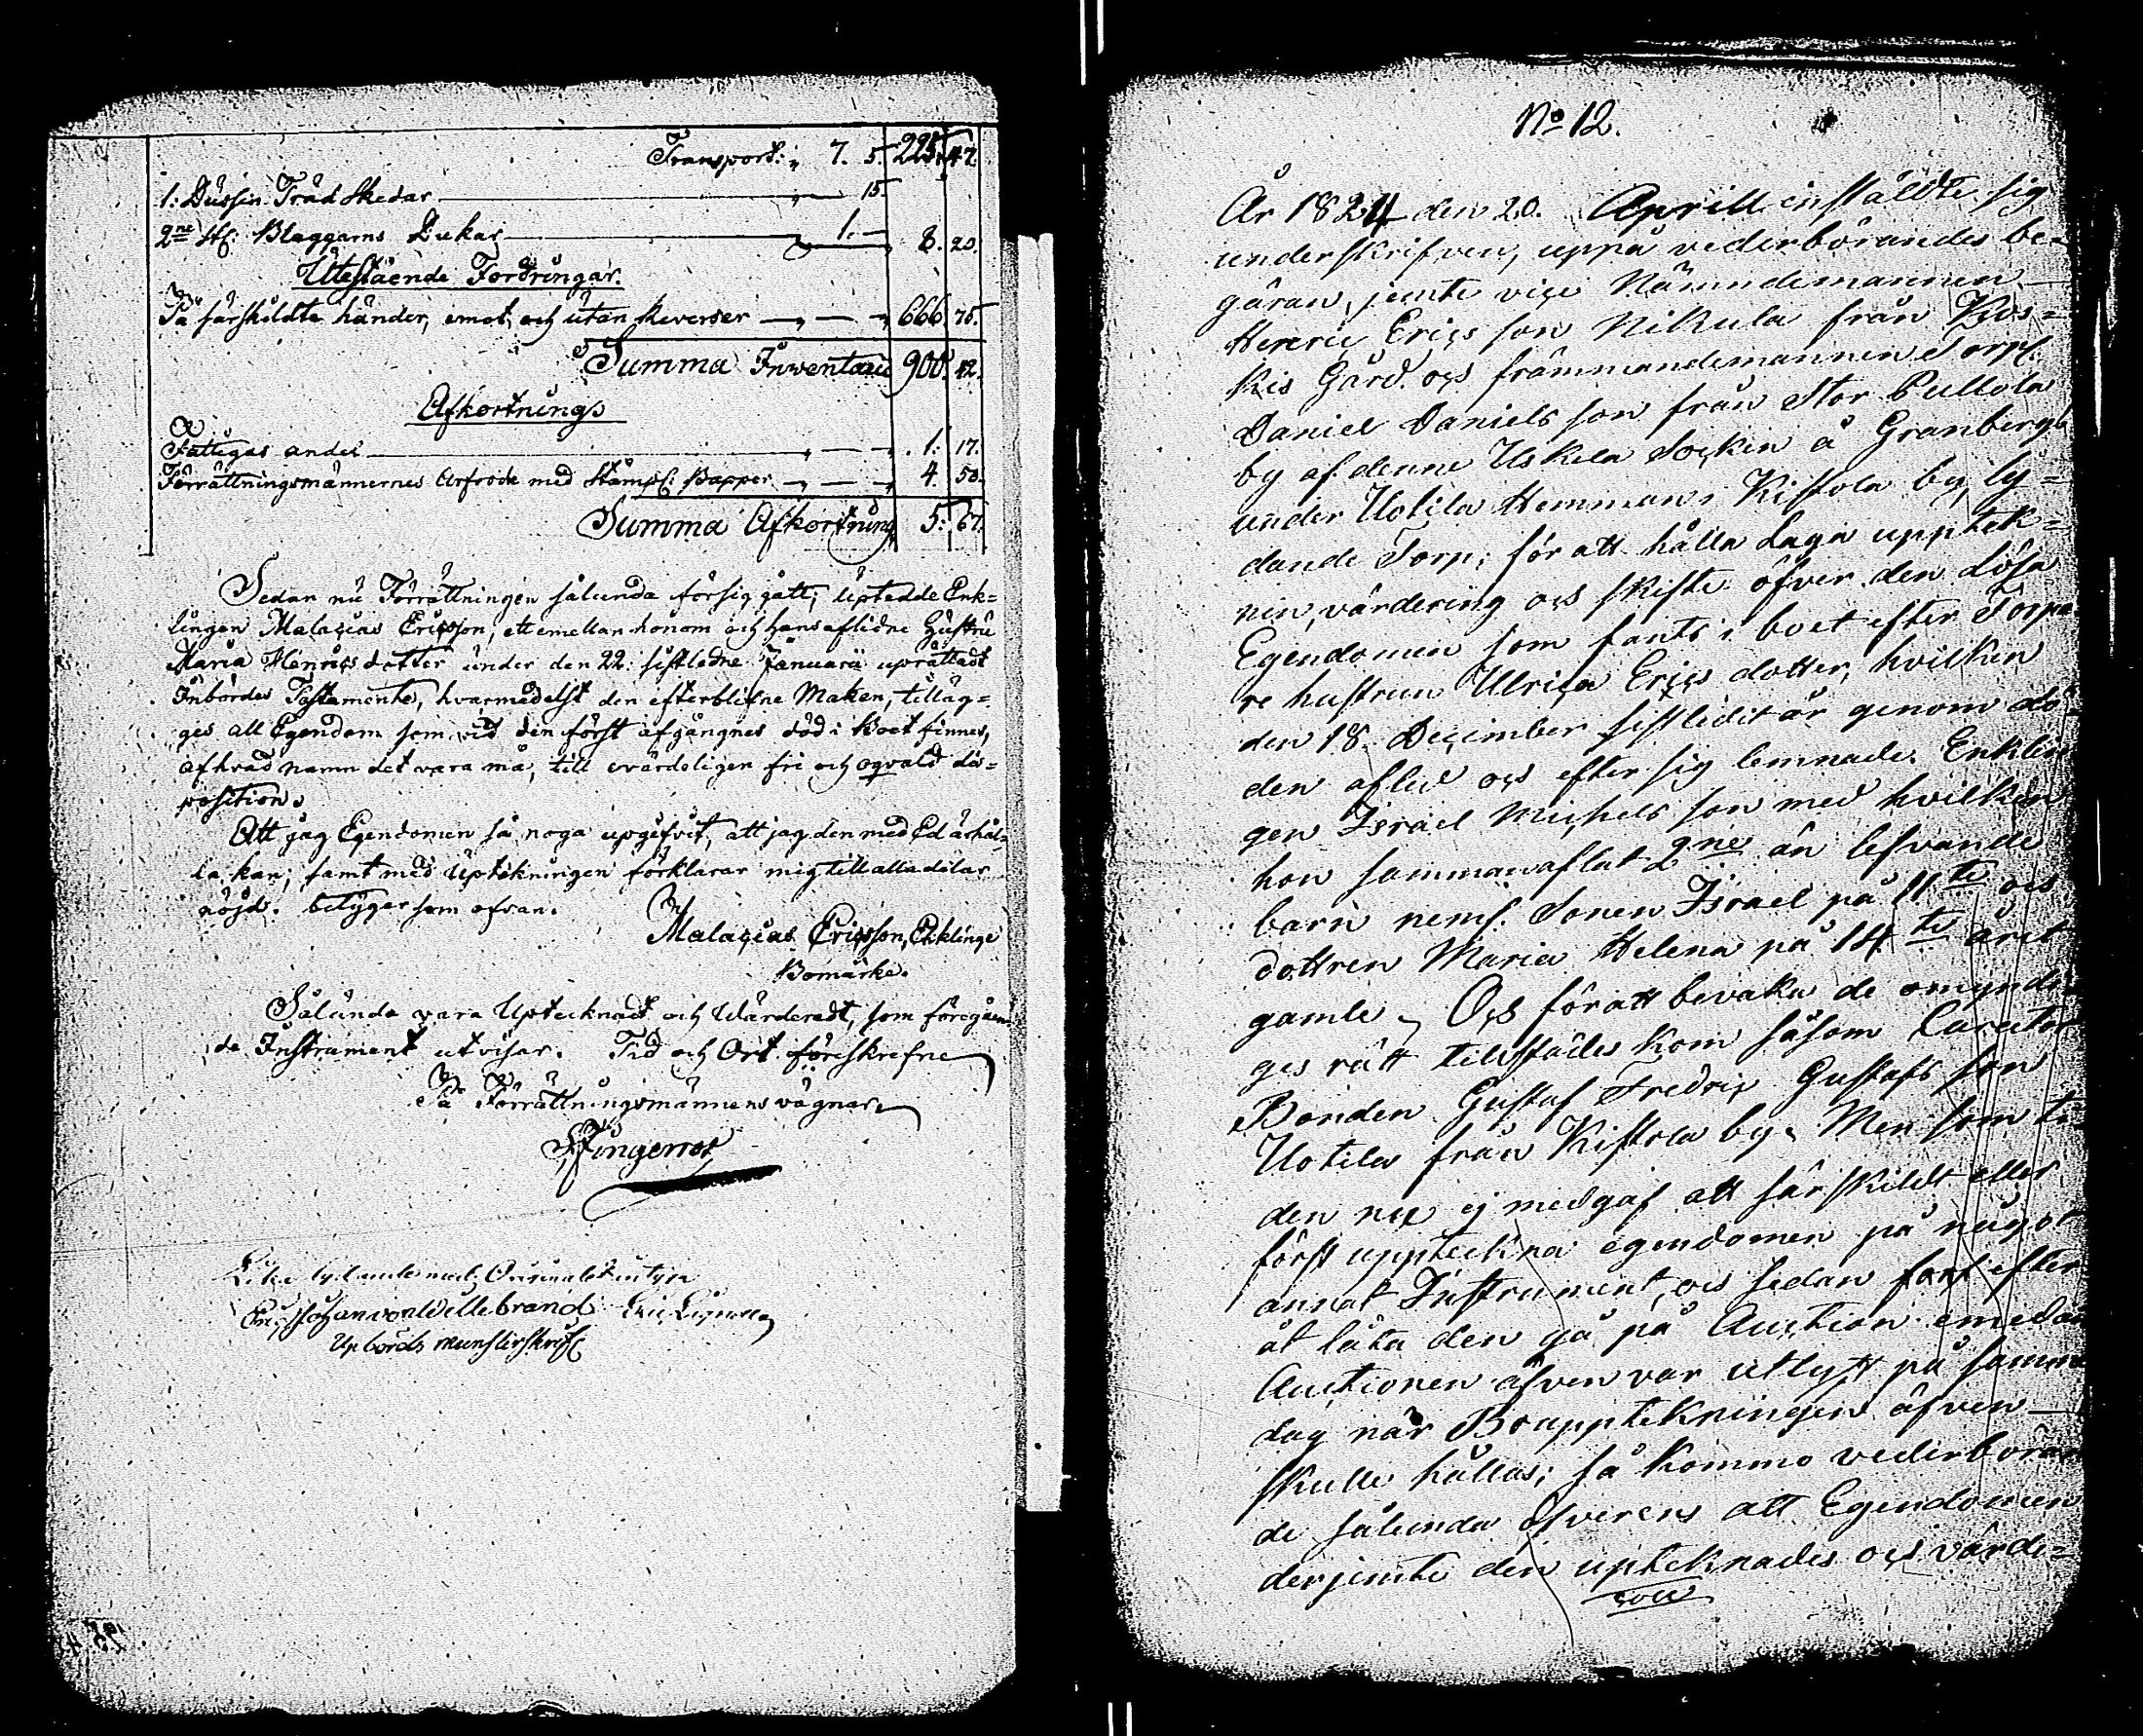 Transport: „ 7. 5. 225. 47.
1: Dussin Träd Skedar „ 15.
2ne st: Blaggarns Dukar „ 1. — 8. 20.
Utestående Fordringar.
På särskildta händer, emot, och utan Reverser „ — „ 666. 75.
Summa Inventarii 900. 42.
Afkortnings
Fattigas andel „ — „ 1: 17.
Förrättningsmännernes Arfvode med Stämpl: Papper „ — „ 4. 50.
Summa Afkortning 5: 67.
Sedan nu Förrättningen sålunda försiggått; upteedde Enk=
lingen Malaçias Ericsson, ett emellan honom och hans aflidne Hustru
Maria Henriçs dotter under den 22: sistledne Januarii uprättadt
Inbördes Testamente, hvarmedelst den efterblifne Maken, tilläg=
ges all Egendom som vid den först afgångnes död i Boet finnes,
af hvad namn det vara må, till evärdeligen fri och oqvald dis=
position.
Att jag Egendomen så noga upgifvit, att jag den med Ed erhål=
la kan; samt med Uptekningen förklarar mig till alla delar
nöjd. betyger som ofvan.
Malaçias Ericsson, Enklinge
Bomärke.
Sålunda vara Uptecknadt och Värderadt, som föregåen=
de Instrument utvisar. Tid och Ort föreskrefne
På Förrättningsmännens vägnar
Ljungerrot
Lika lydande med Originalet intyga
Johan von Willebrand Eric
Upbörds munsterskrif:
No 12.
År 1824 den 20. Aprill instäldte sig
underskrifven, uppå vederbörandes be=
gäran, jemte viçe Nämndemannen
Henric Eriçs son Nikula från Kos=
kis Gård. oçh främmandemannen Torp:
Daniel Daniels son från Stor Pullola
by af denne Uskela Soçken å Granbergs
under Uotila Hemman i Kistola by, ly=
dande Torp; för att hålla Laga upptek=
nin, värdering oçh skifte öfver den Lösa
Egendomen som fants i boet efter Torpa
re hustrun Ulriça Eriçs dotter, hvilken
den 18 Deçember sistledit år genom dö
den afled oçh efter sig lemnade Enklin
gen Israel Michels son med hvilken
hon sammanaflat 2ne än lefvande
barn neml. Sonen Israel på 11te och
dottren Maria Helena på 14te året
gamle. Oçh för att bevaka de omyndi
ges rätt tillstädes kom såsom Curator
Bonden Gustaf Fredriç Gustafs son
Uotila från Kistola by. Men som ti
den nu ej medgaf att särskildt eller
först uppteckna egendomen på något
annat Instrument, oçh sedan fort efter
åt låta den gå på Auçtion emedan
Auctionen äfven var utlyst på samma
dag när Bouppteckningen äfven
skulle hållas; så kommo vederböran
de sålunda öfverens att Egendomen
derjemte den upteknades oçh värde=